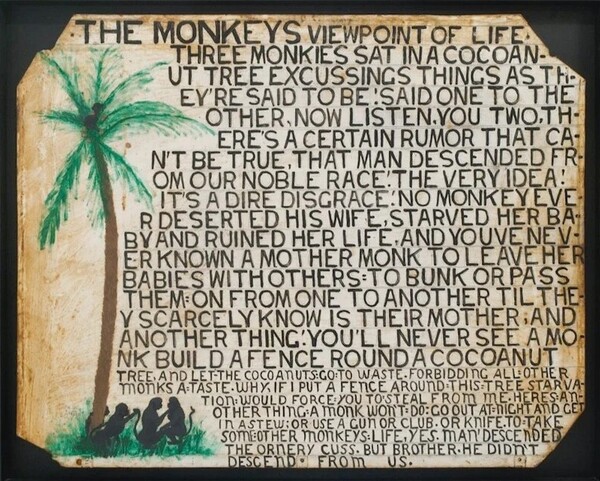 ·THE MONKEYS VIEWPOINT OF LIFE.
THREE MONKIES SAT IN A COCOAN-
UT TREE EXCUSSINGS THINGS AS TH-
EY'RE SAID TO BE! SAID ONE TO THE
OTHER, NOW LISTEN, YOU TWO, TH-
ERE'S A CERTAIN RUMOR THAT CA-
N'T BE TRUE, THAT MAN DESCENDED FR-
OM OUR NOBLE RACE! THE VERY IDEA!
IT'S A DIRE DISGRACE! NO MONKEY EVE
R DESERTED HIS WIFE, STARVED HER BA-
BY AND RUINED HER LIFE, AND YOUVE NEV-
ER KNOWN A MOTHER MONK TO LEAVE HER
BABIES WITH OTHERS: TO BUNK OR PASS
THEM: ON FROM ONE TO ANOTHER TIL THE-
Y SCARCELY KNOW IS THEIR MOTHER, AND
ANOTHER THING! YOU'LL NEVER SEE A MO-
NK BUILD A FENCE ROUND A COCOANUT
TREE, AND LET: THE COCOANUTS: GO: TO WASTE. FORBIDDING ALL: OTHER
MONKS A: TASTE. WHY, IF I PUT A FENCE AROUND: THIS: TREE STARVA-
TION: WOULD FORCE: YOU TO STEAL FROM ME. HERE'S: AN-
OTHER THING: A MONK WON'T: DO: GO OUT AT: NIGHT AND GET
IN A STEW: OR USE A GUN OR CLUB, OR KNIFE. TO: TAKE
SOME: OTHER MONKEYS: LIFE, YES, MAN DESCENDED
THE ORNERY CUSS. BUT BROTHER. HE DIDN'T
DESCEND · FROM US.